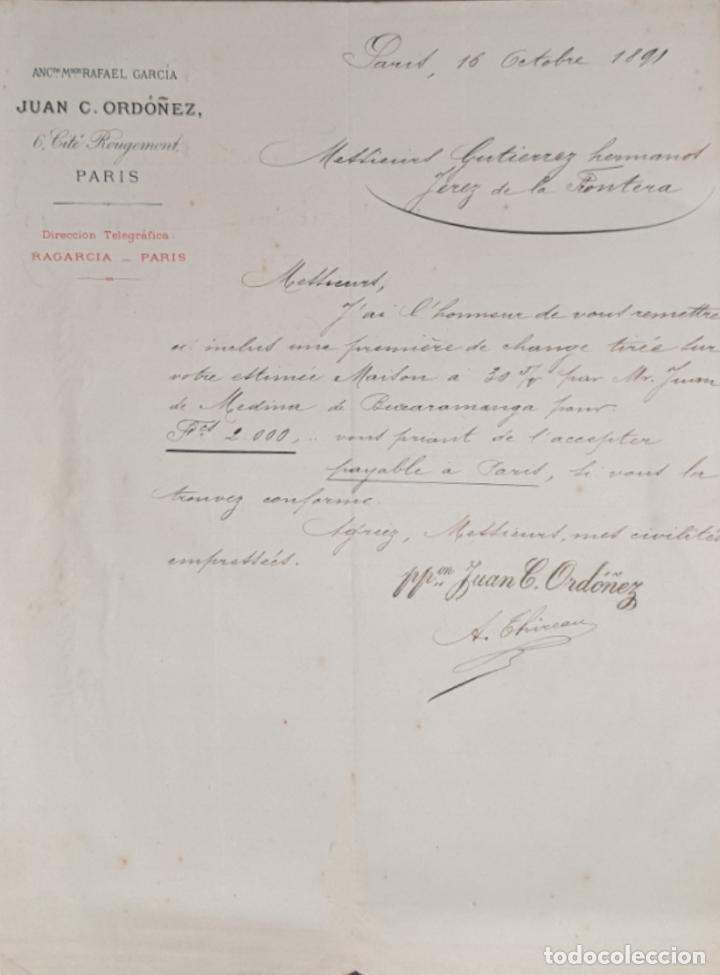 ANC.NE M.SON RAFAEL GARCÍA
JUAN C. ORDÓÑEZ,
6, Cité Rougemont,
PARIS
Direccion Telegráfica:
RAGARCIA _ PARIS
Paris, 16 Octobre 1891
Messieurs Gutierrez hermanos
Jerez de la Frontera
Messieurs,
J'ai l'honneur de vous remettre
ci inclus une première de change tirée sur
votre estimée Maison à 30 par Mr. Juan
de Medina de Bucaramanga pour
Fcs 2.000,.. vous priant de l'accepter
payable à Paris, si vous la
trouvez conforme.
Agréez, Messieurs, mes civilités
empressées.
pp.on Juan C. Ordóñez
todocoleccion.net